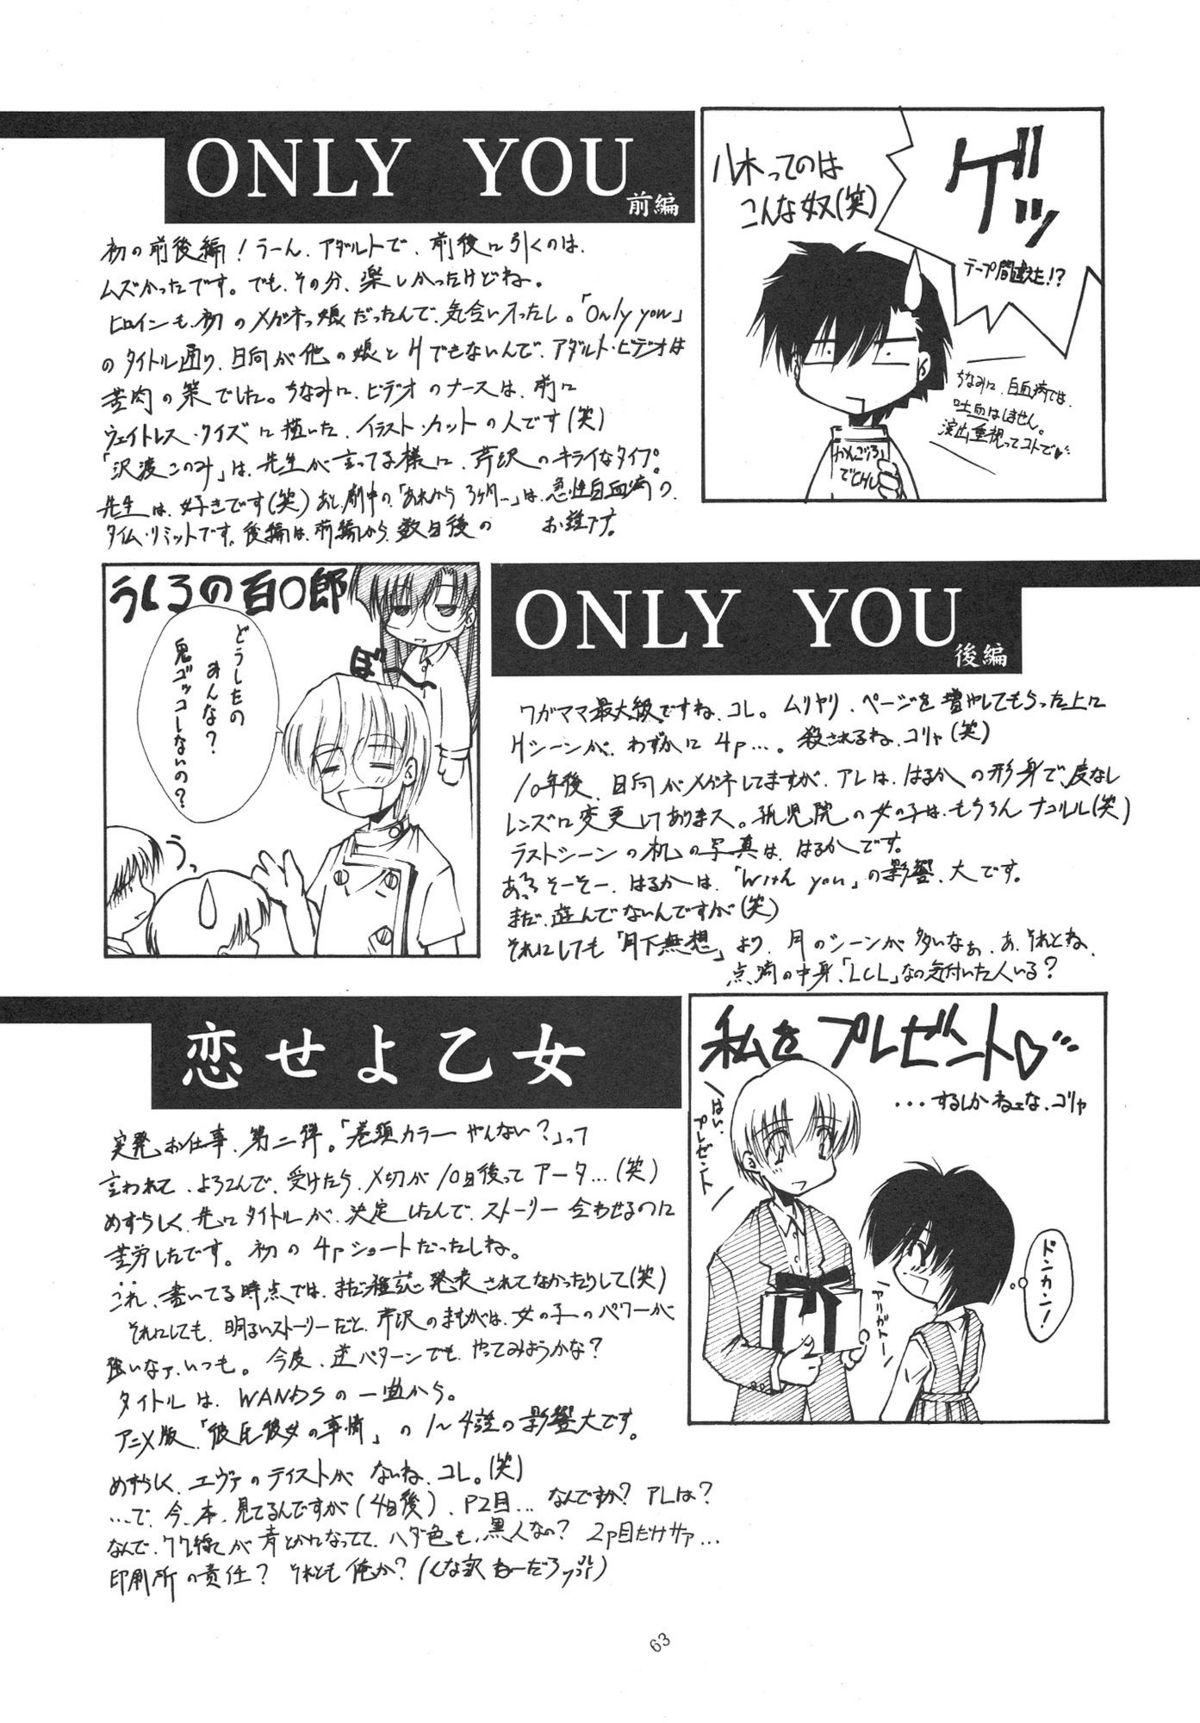 ONLY YOU
前編
初の前後編！うーん、アダルトで、前後に引くのは、
ムズかったです。でも、その分、楽しかったけどね。
ヒロインも、初のメガネっ娘だったんで、気合い入ったし。「Only you」
のタイトル通り、日向が他の娘とHでもないんで、アダルト・ビデオは
苦肉の策でした。ちなみに、ビデオのナースは、前に
ウェイトレス・クイズに描いた、イラスト・カットの人です(笑)
「沢渡このみ」は、先生が言ってる様に、芹沢のキライなタイプ。
先生は、好きです(笑)あと、劇中の「あれから3ヶ月…」は、急性白血病の、
タイム・リミットです。後編は、前編から、数日後の お話です。
八木ってのは
こんな奴(笑)
ゲッ
テープ間違えた!?
ちなみに、白血病では、
吐血はしません。
演出重視ってコトで♥
かんごりろ
でCHU
うしろの百○郎
どうしたの
みんな？
鬼ゴッコしないの？
ぼ〜
うっ
ONLY YOU
後編
ワガママ最大級ですね、コレ。ムリヤリ、ページを増やしてもらった上に
Hシーンが、わずかに4p…。殺されるね、コリャ(笑)
10年後、日向がメガネしてますが、アレは、はるかの形身で、度なし
レンズに変更してありまス。孤児院の女の子は、もちろんナコルル(笑)
ラストシーンの机の写真は、はるかです。
あっ、そーそー、はるかは、「With you」の影響、大です。
まだ、遊んでないんですが(笑)
それにしても「月下無想」より、月のシーンが多いなぁ、あ、それとね、
点滴の中身、「LCL」なの気付いた人いる？
恋せよ乙女
突発お仕事、第二弾。「巻頭カラーやんない？」って
言われて、よろこんで、受けたら、〆切が10日後ってアータ…(笑)
めずらしく、先にタイトルが、決定したんで、ストーリー合わせるのに
苦労したです。初の4pショートだったしね。
これ、書いてる時点では、まだ雑誌発表されてなかったりして(笑)
それにしても、明るいストーリーだと、芹沢のまんがは、女の子のパワーが
強いなァ、いつも。今度、逆パターンでも、やってみようかな？
タイトルは、WANDSの一曲から。
アニメ版、「彼氏彼女の事情」の1〜4話の影響大です。
めずらしく、エヴァのテイストがないね、コレ。(笑)
…で、今、本、見てるんですが(4日後)、P2目…なんですか？アレは？
なんで、ワク線が青とかになってて、ハダ色も、黒人なの？2p目だけサァ…
印刷所の責任？それとも俺か？(んな訳ねーだろっ!!)
私をプレゼント♡…
…するしかねェな、コリャ
はい、
プレゼント
アリガトー
ドンカン！
63